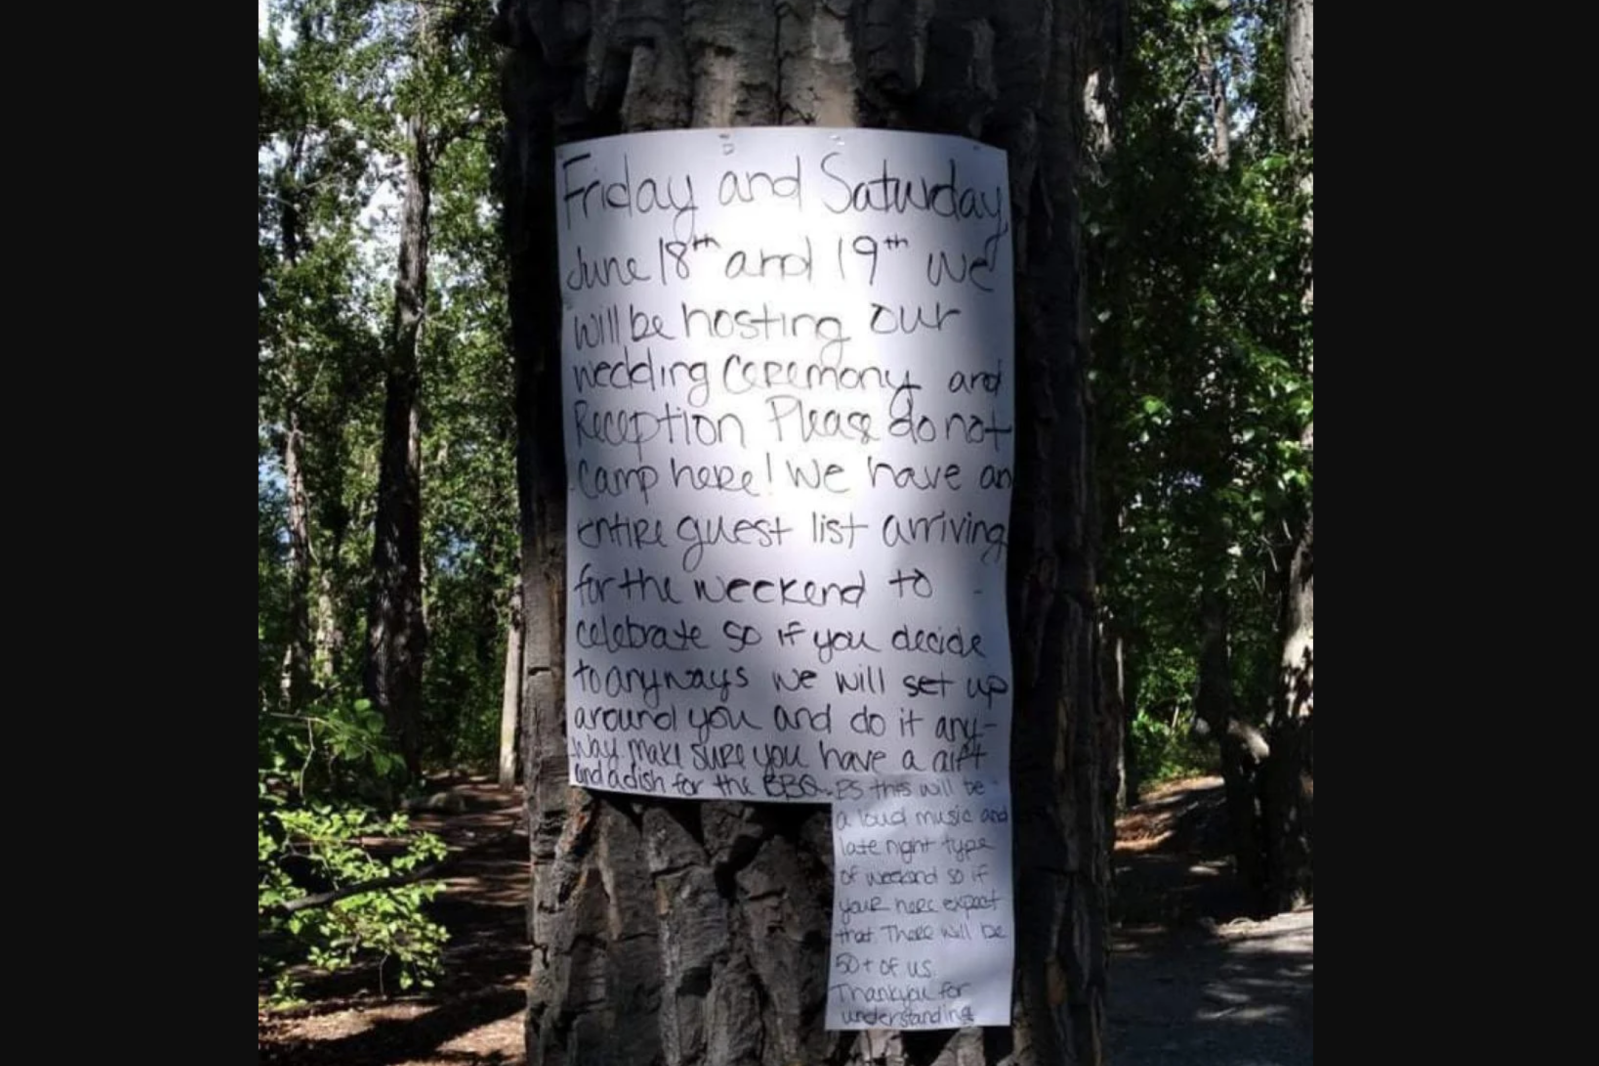 Friday and Saturday
June 18th and 19th we
will be hosting our
wedding ceremony and
Reception Please do not
Camp here! We have an
entire guest list arriving
for the weekend to
celebrate so if you decide
to anyways we will set up
around you and do it any-
way make sure you have a gift
and a dish for the BBQ.
PS this will be
a loud music and
late night type
of weekend so if
your here expect
that. There will be
50+ of us.
Thankyou for
understanding